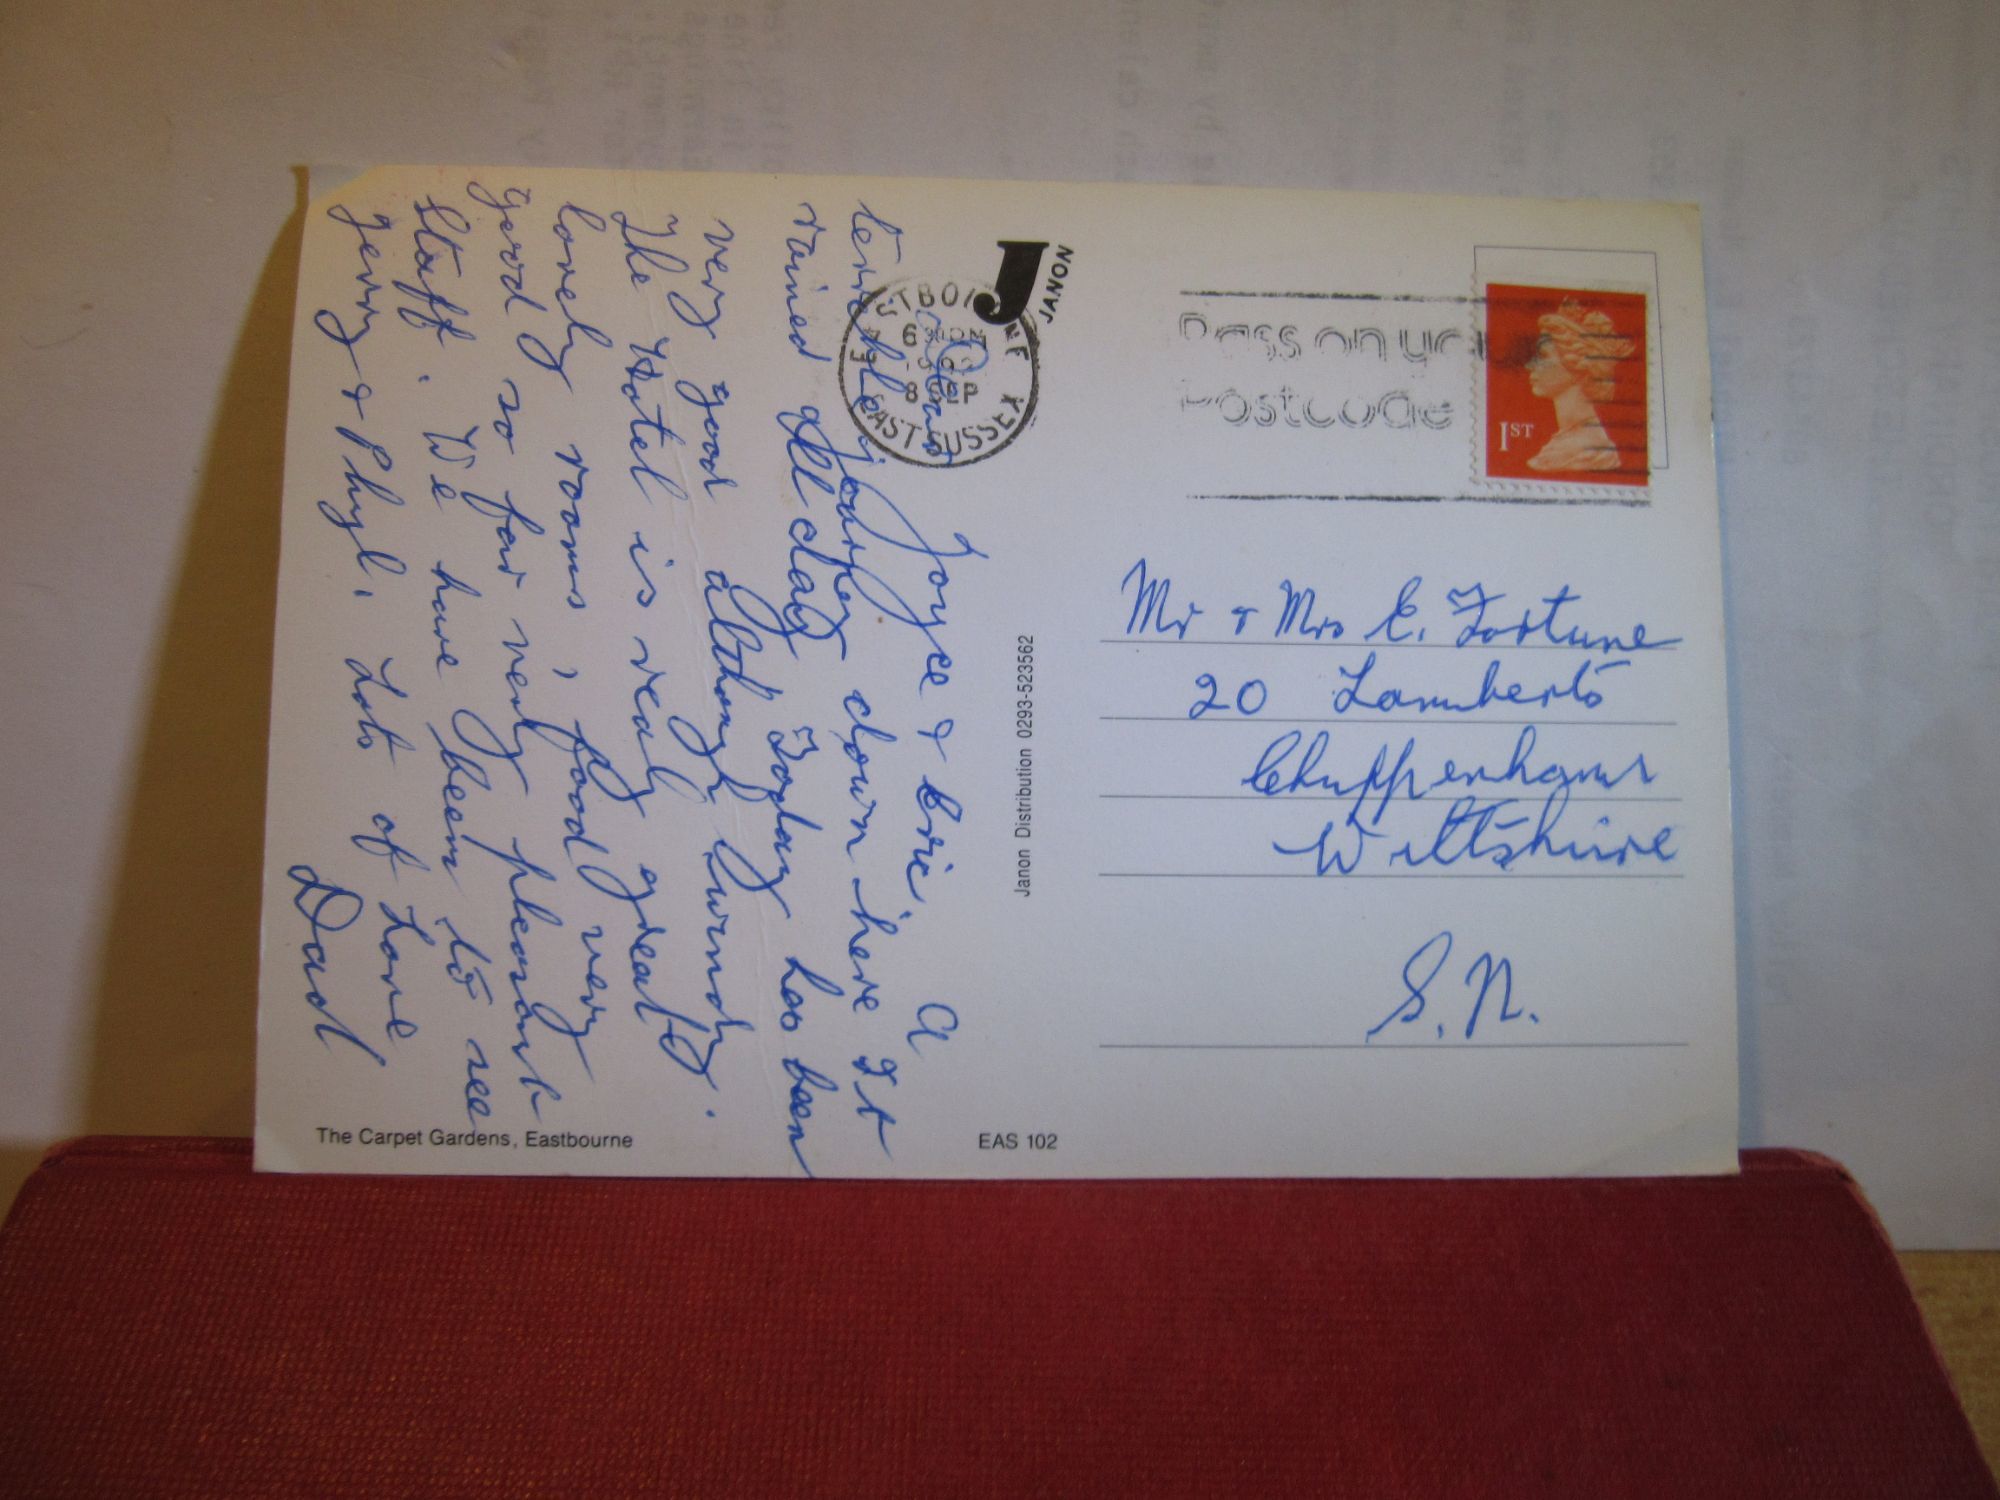 Dear
Joyce & Eric, A
terrible journey down here It
rained all day Today has been
very good although windy.
The Hotel is realy great
lovely rooms, food very
good so far very pleasant
staff. We have been to see
Gerry & Phyl. Lots of Love
Dad
The Carpet Gardens, Eastbourne
EAS 102
J
JANON
EAST SUSSEX
Janon Distribution 0293-523562
Pass on your
Postcode
1ST
Mr & Mrs E. Fortune
20 Lamberts
Chippenham
Wiltshire
S.N.